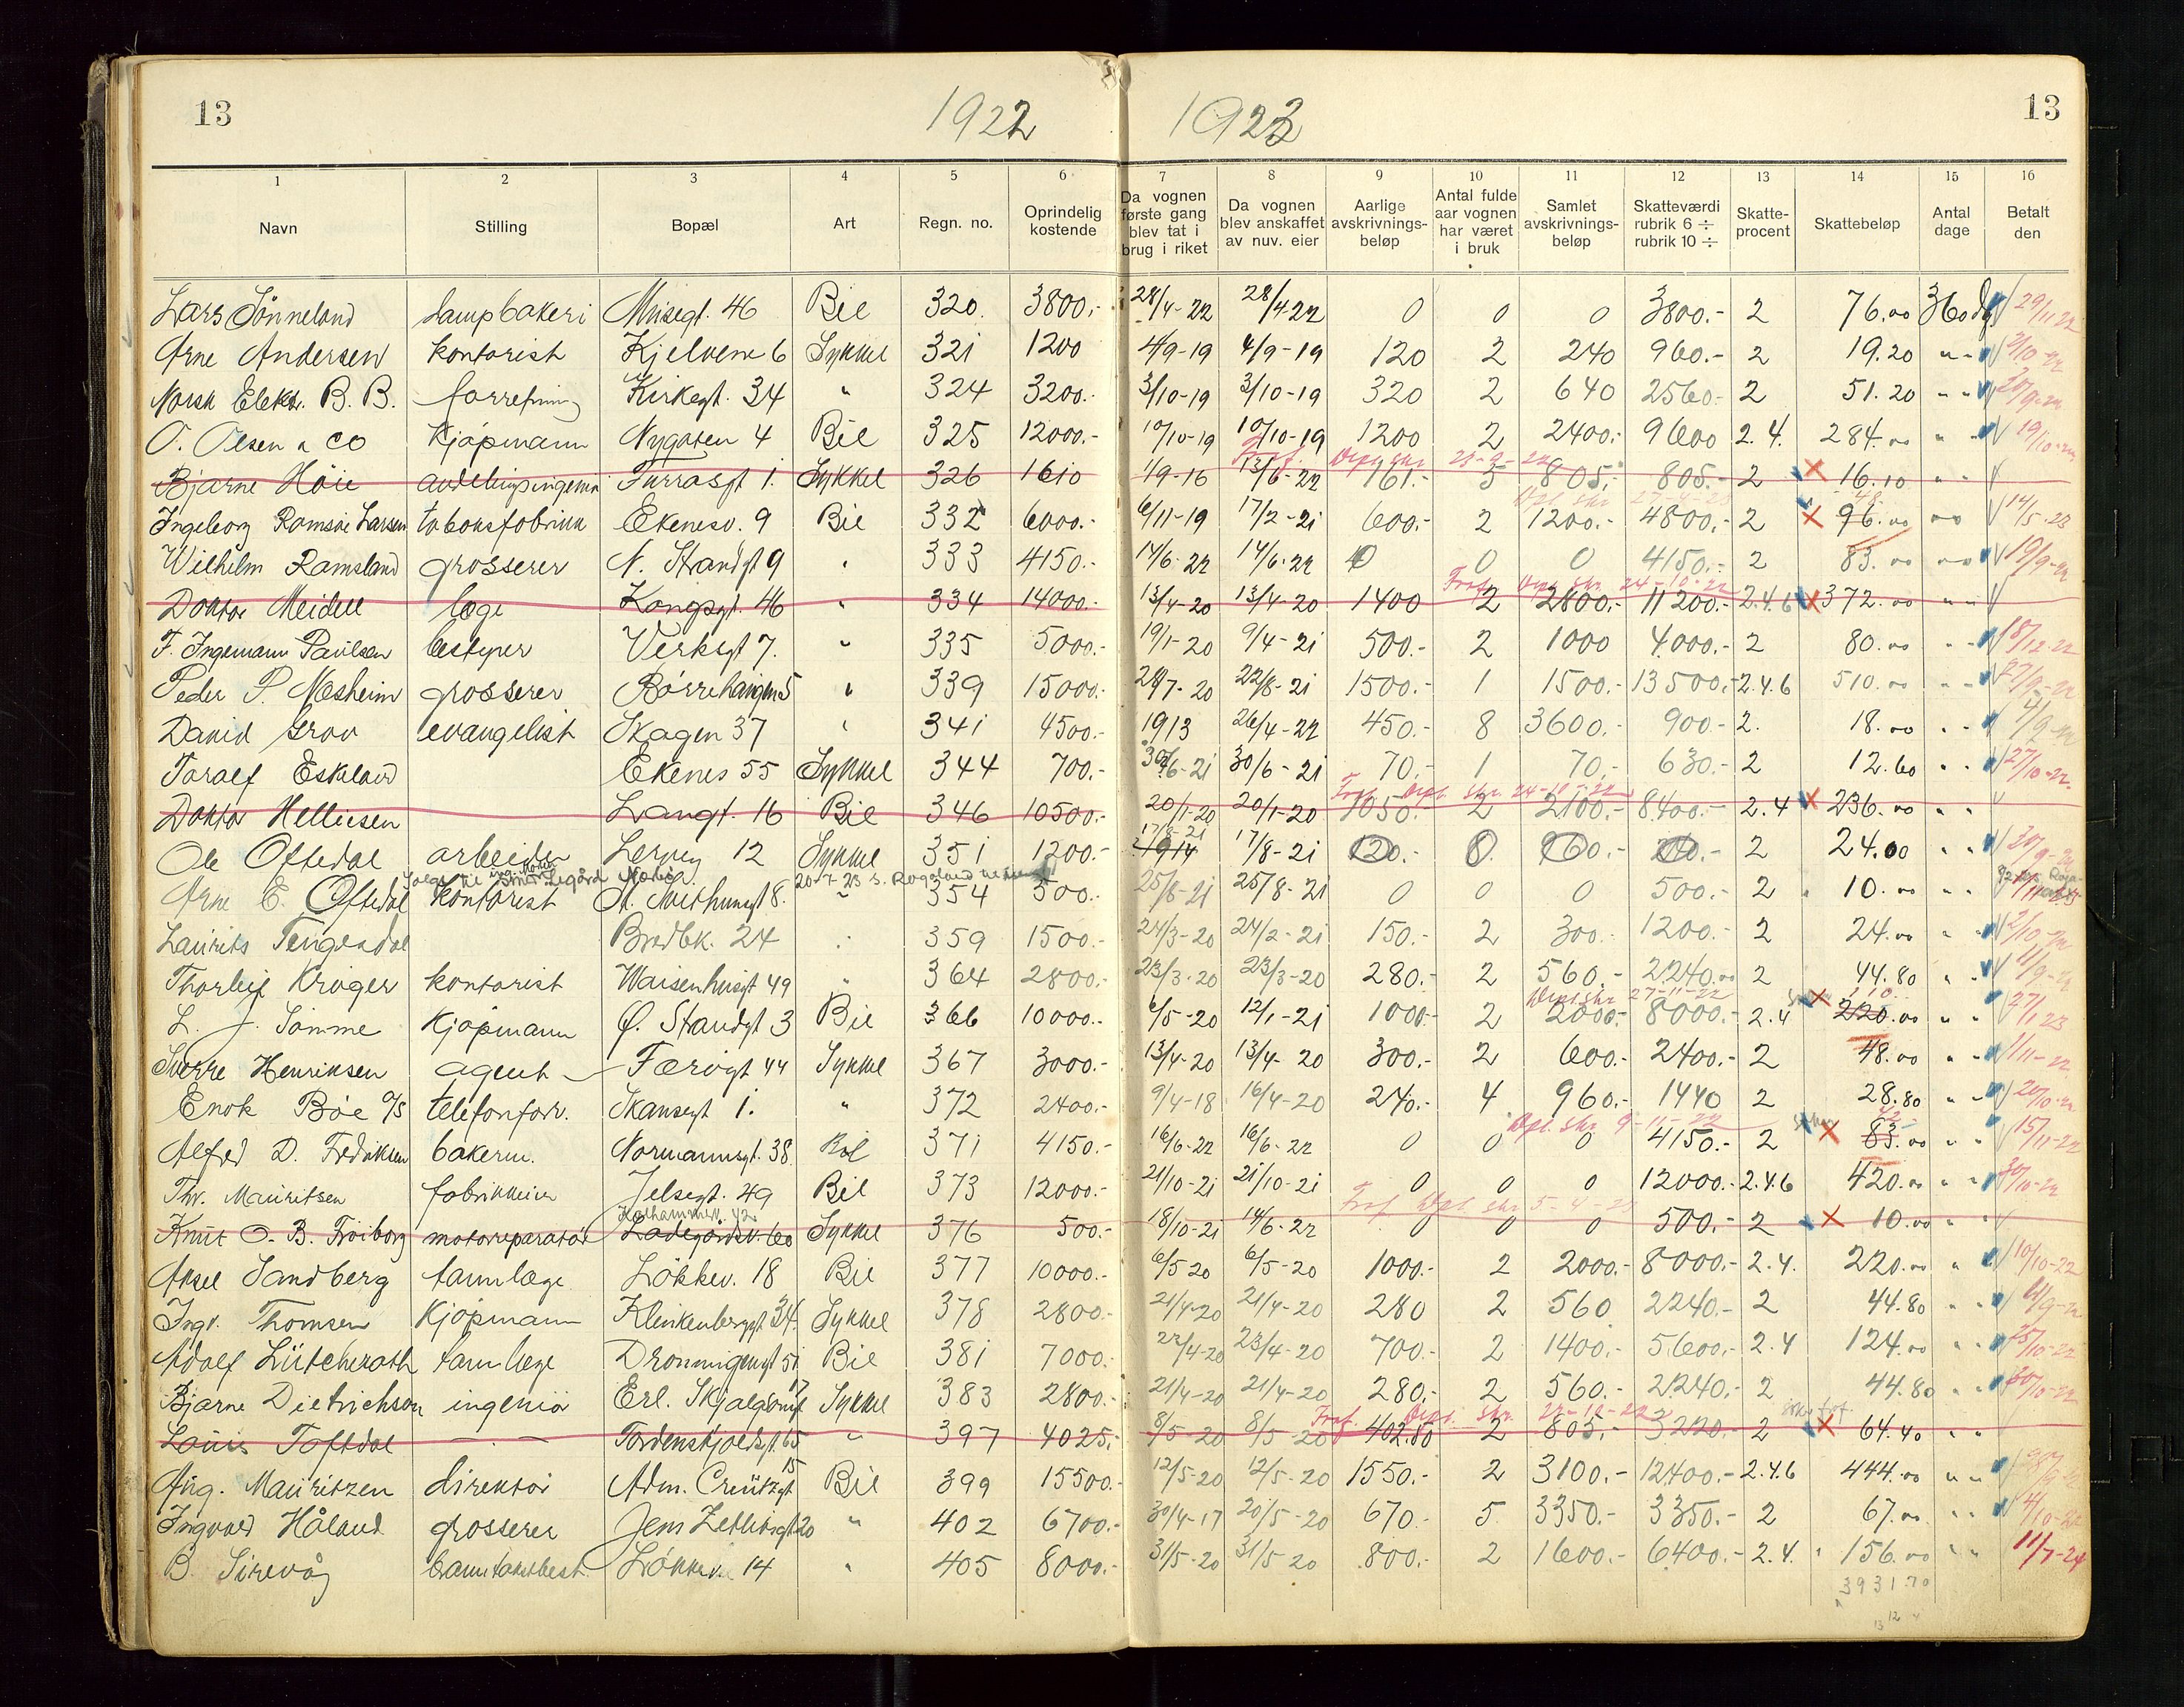 13 1922 1923 13
1 2 3 4 5 6 7 8 9 10 11 12 13 14 15 16
Navn Stilling Bopæl Art Regn. no. Oprindelig kostende Da vognen første gang blev tat i brug i riket Da vognen blev anskaffet av nuv. eier Aarlige avskrivnings-beløp Antal fulde aar vognen har været i bruk Samlet avskrivnings-beløp Skatteværdi rubrik 6 ÷ rubrik 10 ÷ Skatte-procent Skattebeløp Antal dage Betalt den
Lars Sönneland Musegt. 46 Bil 320. 3800,- 28/4-22 28/4 22 0 0 0 3800.- 2 76.00 360 29/11 22
Arne Andersen kontorist Kjelvene 6 Sykkel 321 1200 4/9-19 4/9-19 120 2 240 960.- 2 19.20 " " 2/10-22
Norsk Elektr. B. B. forretning Kirkegt. 34 " 324 3200.- 3/10-19 3/10-19 320 2 640 2560.- 2 51.20 " " 20/9-22
O. Olsen & Co Kjøpmann Nygaten 4 Bil 325 12000.- 10/10-19 10/10-19 1200 2 2400.- 9600 2.4. 284.00 " " 19/10-22
Dept skr 23-9-22
Bjarne Höie Furrasgt 1. Sykkel 326 1610 1/9-16 13/6-22 161.- 5 805,- 805.- 2 16.10 " "
Dpt. skr 48
Ingeborg Ramsøe Larsen tobaksfabrikk Ekenesv. 9 Bil 332 6000.- 6/11-19 17/2-21 600.- 2 1200.- 4800,- 2 96.00 " " 14/5-23
Wilhelm Ramsland grosserer N. Strandgt 9 " 333 4150.- 14/6-22 14/6-22 0 0 0 4150.- 2 83.00 " " 19/9-22
Fraf. Dept skr 24-10-22
Doktor Meidell læge Kongsgt. 46 " 334 14000.- 13/4-20 13/4-20 1400 2 2800.- 11200.- 2.4.6 372.00 " "
F. Ingemann Paulsen bestyrer Verksgt 7. " 335 5000.- 19/1-20 9/4-21 500.- 2 1000 4000.- 2 80.00 " " 18/12-22
Peder P. Næsheim grosserer Börrehaugen 5 " 339 15000.- 28/7-20 22/8-21 1500.- 1 1500.- 13500.- 2.4.6 510.00 " " 27/9-22
David Grov evangelist Skagen 37 " 341 4500.- 1913 26/4-22 450.- 8 3600.- 900.- 2. 18.00 " " 4/9-22
Toralf Eskeland Ekenes 55 Sykkel 344 700.- 30/6-21 30/6-21 70.- 1 70.- 630.- 2 12.60 " " 27/10-22
Fraf. Dept. skr 24-10-22
Doktor Helliesen Langt. 16 Bil 346 10500.- 20/1-20 20/1-20 1050.- 2 2100.- 8400.- 2.4 236.00 " "
17/8-21
Ole Oftedal arbeider Lervig 12 Sykkel 351 1200.- 1914 17/8-21 120.- 8. 960.- 240.- 2 24.00 " " 30/9-22
20-7-23 s. Rogaland
Arne E. Oftedal Kontorist 8. " 354 500.- 25/8-21 25/8-21 0 0 0 500.- 2 10.00 " "
Laurits Tengesdal Bredbk. 24 " 359 1500.- 24/3-20 24/2-21 150.- 2 300.- 1200.- 2 24.00 " " 2/10-22
Thorleif Krøger kontorist Waisenhusgt 49 " 364 2800.- 23/3-20 23/3-20 280.- 2 560.- 2240.00 2 44.80 " " 11/9-22
Dept skr 27-11-22 110.
L. J. Sömme Kjøpmann Ø. Standgt 3 Bil 366 10000.- 6/5-20 12/1-21 1000.- 2 2000.- 8000.- 2.4 220.00 " " 27/1 23
Sverre Henriksen agent Færvigt 44 Sykkel 367 3000.- 13/4-20 13/4-20 300.- 2 600.- 2400.- 2 48.00 " " 1/11-22
Enok Böe A/S telefonforr. Skansegt 1. " 372 2400.- 9/4-18 16/4-20 240.- 4 960.- 1440 2 28.80 " " 20/10-22
Dpt. skr 9-11-22 42
Alfred D. Fredriksen bakerm. Normannsgt. 38 Bil 371 4150.- 16/6-22 16/6-22 0 0 0 4150.- 2 83.00 " " 15/11-22
Thv. Mauritsen fabrikkeier Jelsegt. 49 Bil 373 12000.- 21/10-21 21/10-21 0 0 0 12000.- 2.4.6 420.00 " " 30/10-22
Kolhammerv. 42. Fraf. Dpt. skr 5-4-23
Knut O. B. Fröiborg motorreparatör Ladegårdsv. 60 Sykkel 376 500.- 18/10-21 14/6-22 0 0 0 500.- 2 10.00 " "
Aksel Sandberg tannlæge Løkkev. 18 Bil 377 10000.- 6/5 20 6/5-20 1000.- 2 2000.- 8000.- 2.4. 220.00 " " 10/10-22
Ingv. Thomsen Kjøpmann Klinkenberggt. 34. Sykkel 378 2800.- 21/4-20 21/4-20 280 2 560 2240.- 2 44.80 " "
Adolf Lütcherath tannlæge Dronningensgt 51 Bil 381 7000.- 22/4-20 23/4-20 700.- 2 1400.- 5600.- 2.4 124.00 " " 25/10-22
Bjarne Dietrichson ingeniör Erl. Skjalgsonsgt 17 Sykkel 383 2800.- 21/4-20 21/4-20 280.- 2 560.- 2240.- 2 44.80 " " 30/10-22
Fraf. Dept. skr. 22-12-22
Louis Toftdal Tordenskjoldsgt. 65 " 397 4025.- 8/5-20 8/5-20 402.50 2 805.- 3220.- 2 64.40 " "
Aug. Mauritzen direktör Adm. Creützgt 15 Bil 399 15500.- 12/5-20 12/5-20 1550.- 2 3100.- 12400.- 2.4.6 444.00 " "
Ingvald Håland grosserer Jens Zetlitzsgt 20 " 402 6700.- 30/4-17 20/5-20 670.- 5. 3350.- 3350.- 2 67.00 " " 4/10-22
B. Sirevåg Løkkev. 14 " 405 8000.- 31/5-20 31/5 20 800.- 2 1600.- 6400.- 2.4. 156.00 " " 11/7-24
3931.70